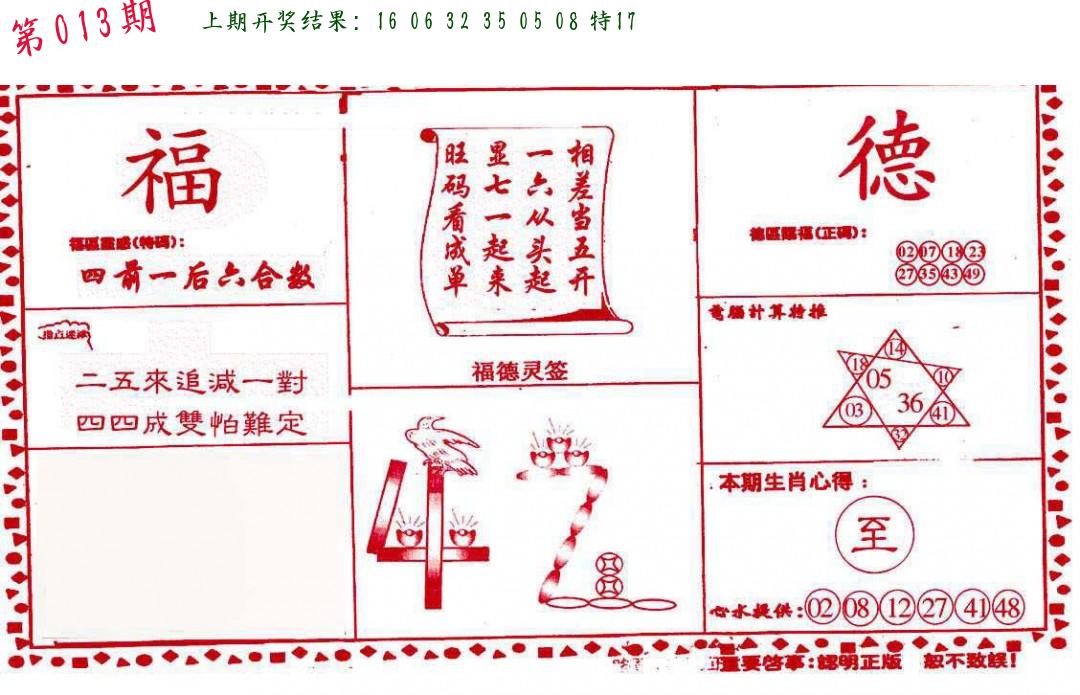 第013期
上期开奖结果：16 06 32 35 05 08 特17
福
福區靈感(特碼)：
四前一后六合数
二五來追減一對
四四成雙怕難定
相差当五开
一六从头起
显七一起来
旺码看成单
福德灵签
42
德
德區賜福(正碼)：
02 07 18 23
27 35 43 49
電腦計算特推
14
18 05 10
03 36 41
32
本期生肖心得：
至
心水提供：02 08 12 27 41 48
重要啓事：認明正版 恕不致誤！